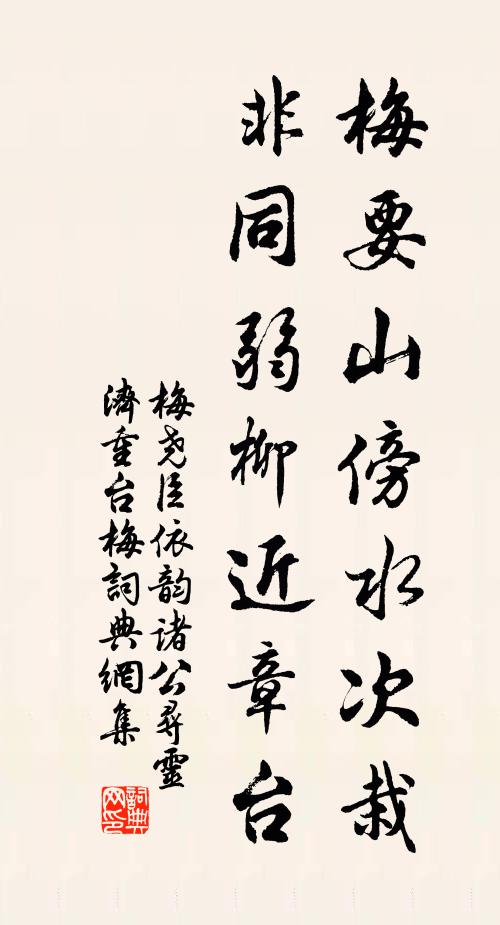 梅要山傍水次栽
非同弱柳近章台
梅尧臣依韵诸公寻靈
濟重台梅詞典網集
詞典网印